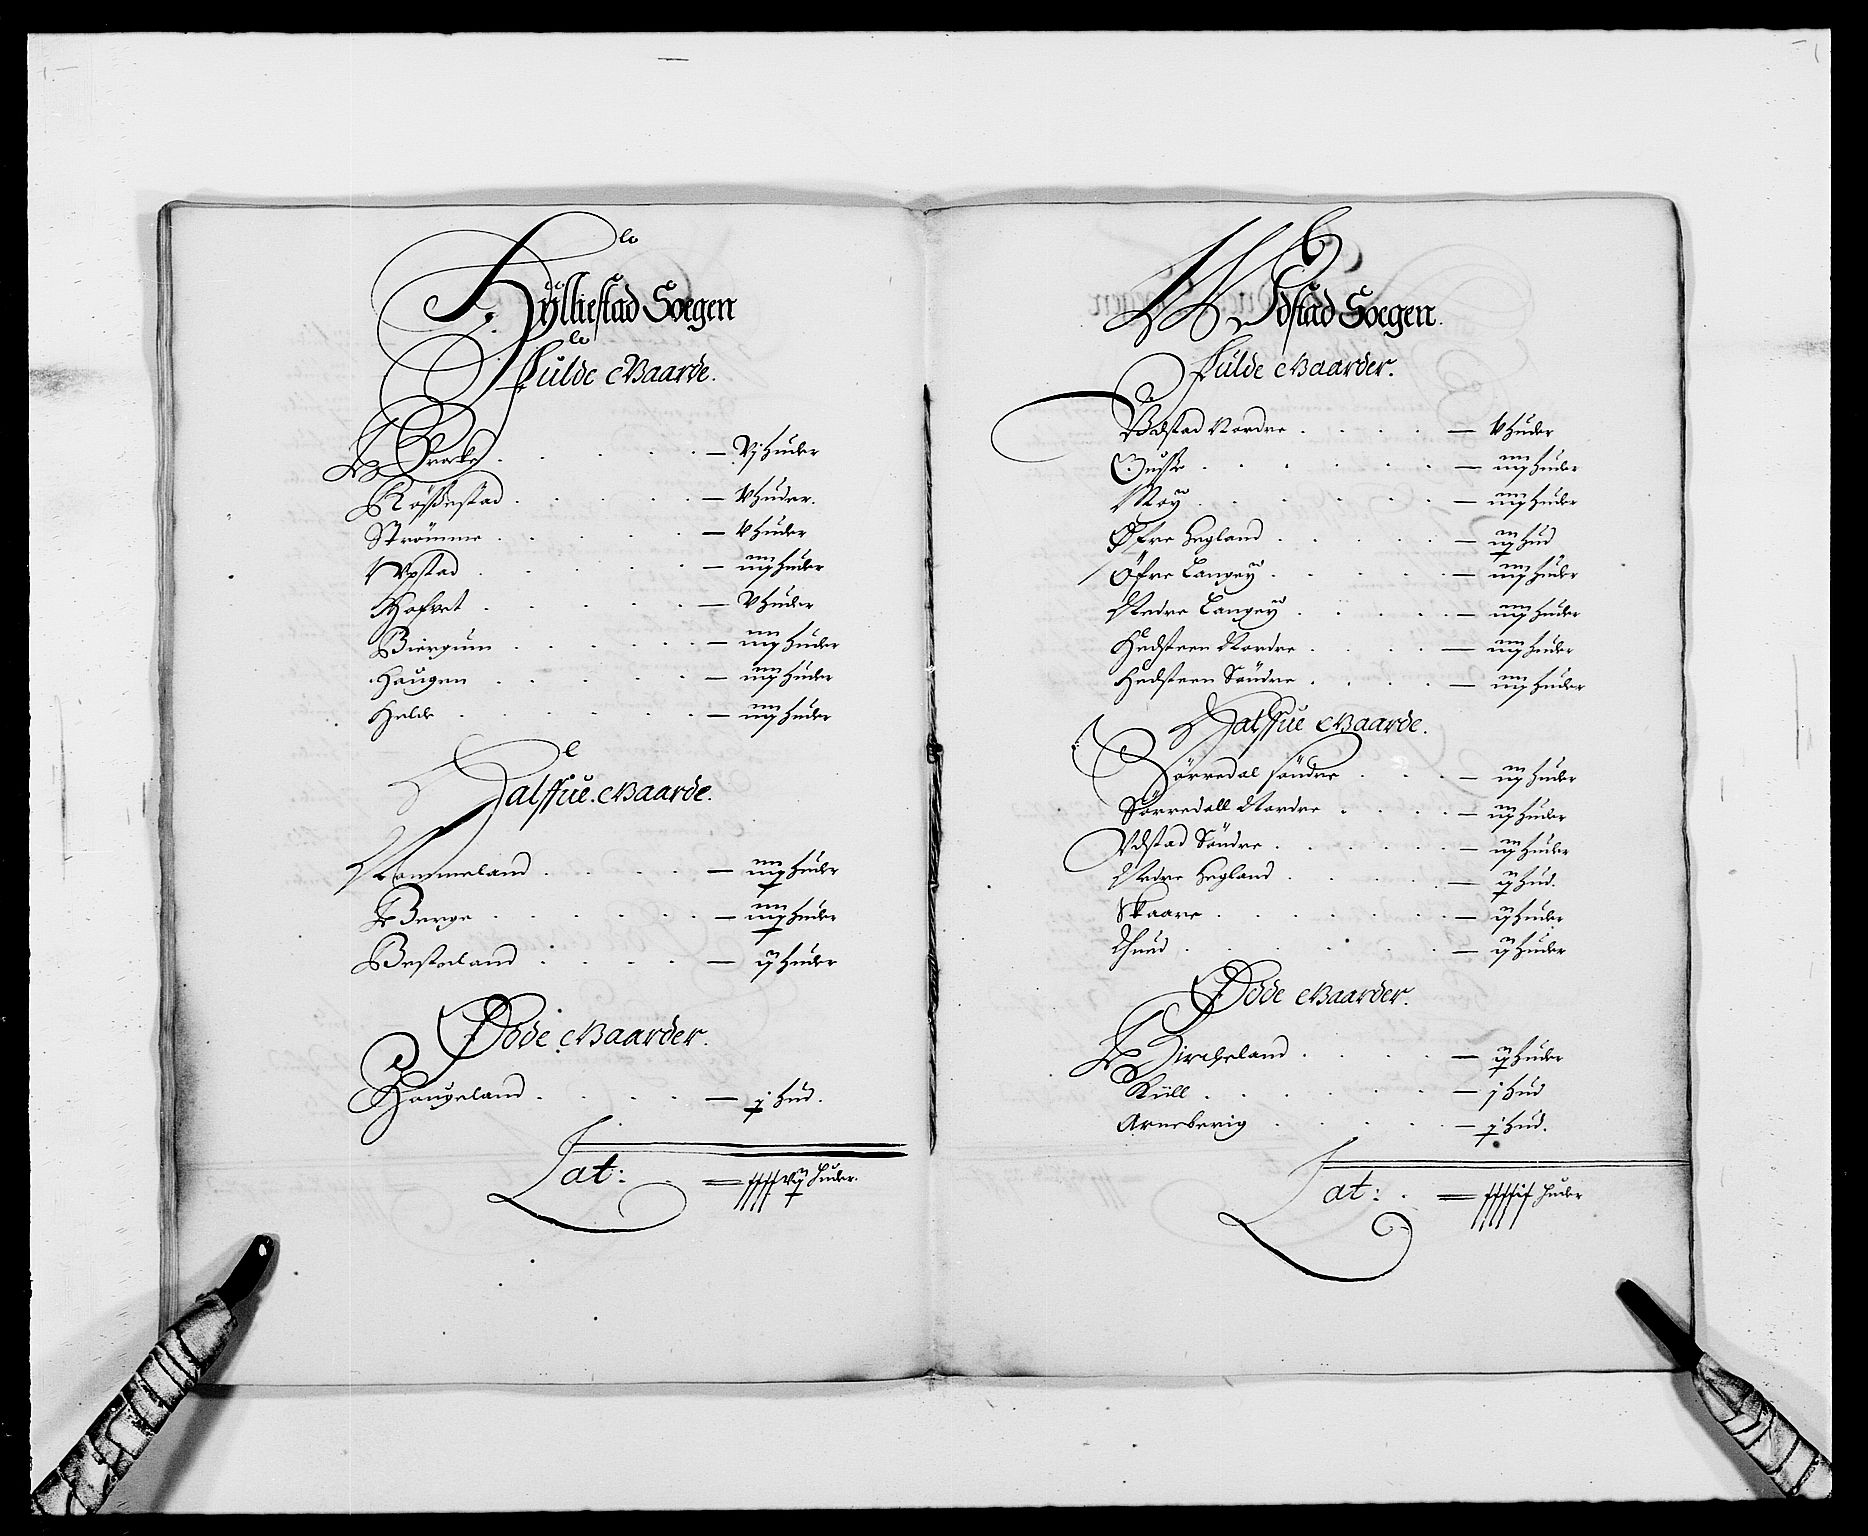 Hÿlliestad Sogen
Fulde Gaarde.
Brocke — Vj Huder
Röÿsestad — V Huder.
Strömme — V Huder
Upstad — iiij Huder
Hofvet — V Huder
Biergum — iiij Huder
Haugen — iiij Huder
Helde — iiij Huder
Halffue Gaarde.
Nommeland — iiij Huder
Berge — iiij Huder
Besteland — ij Huder
Øde Gaarder.
Haugeland — j Hud.
Lat: Huder.
Vdstad Sogen.
Fulde Gaarder.
Vdstad Nordre — V Huder
— iiij Huder
Moÿ — iiij Huder
Øfre Hegland — iij Hud
Øfre Langeÿ — iiij Huder
Nedre Langeÿ — iiij Huder
Hedsteen Nordre — iiij Huder
Hedsteen Söndre — iiij Huder
Halffue Gaarde.
Sörredal söndre — iij Huder
Sörredall Nordre — iij Huder
Vdstad Söndre — iij Huder
Nedre Hegland — ij Hud.
Skaare — ij Huder
— ij Huder
Øde Gaarder.
Kirckeland — ij Huder
— j Hud
Arneberig — j Hud.
Lat: Huder